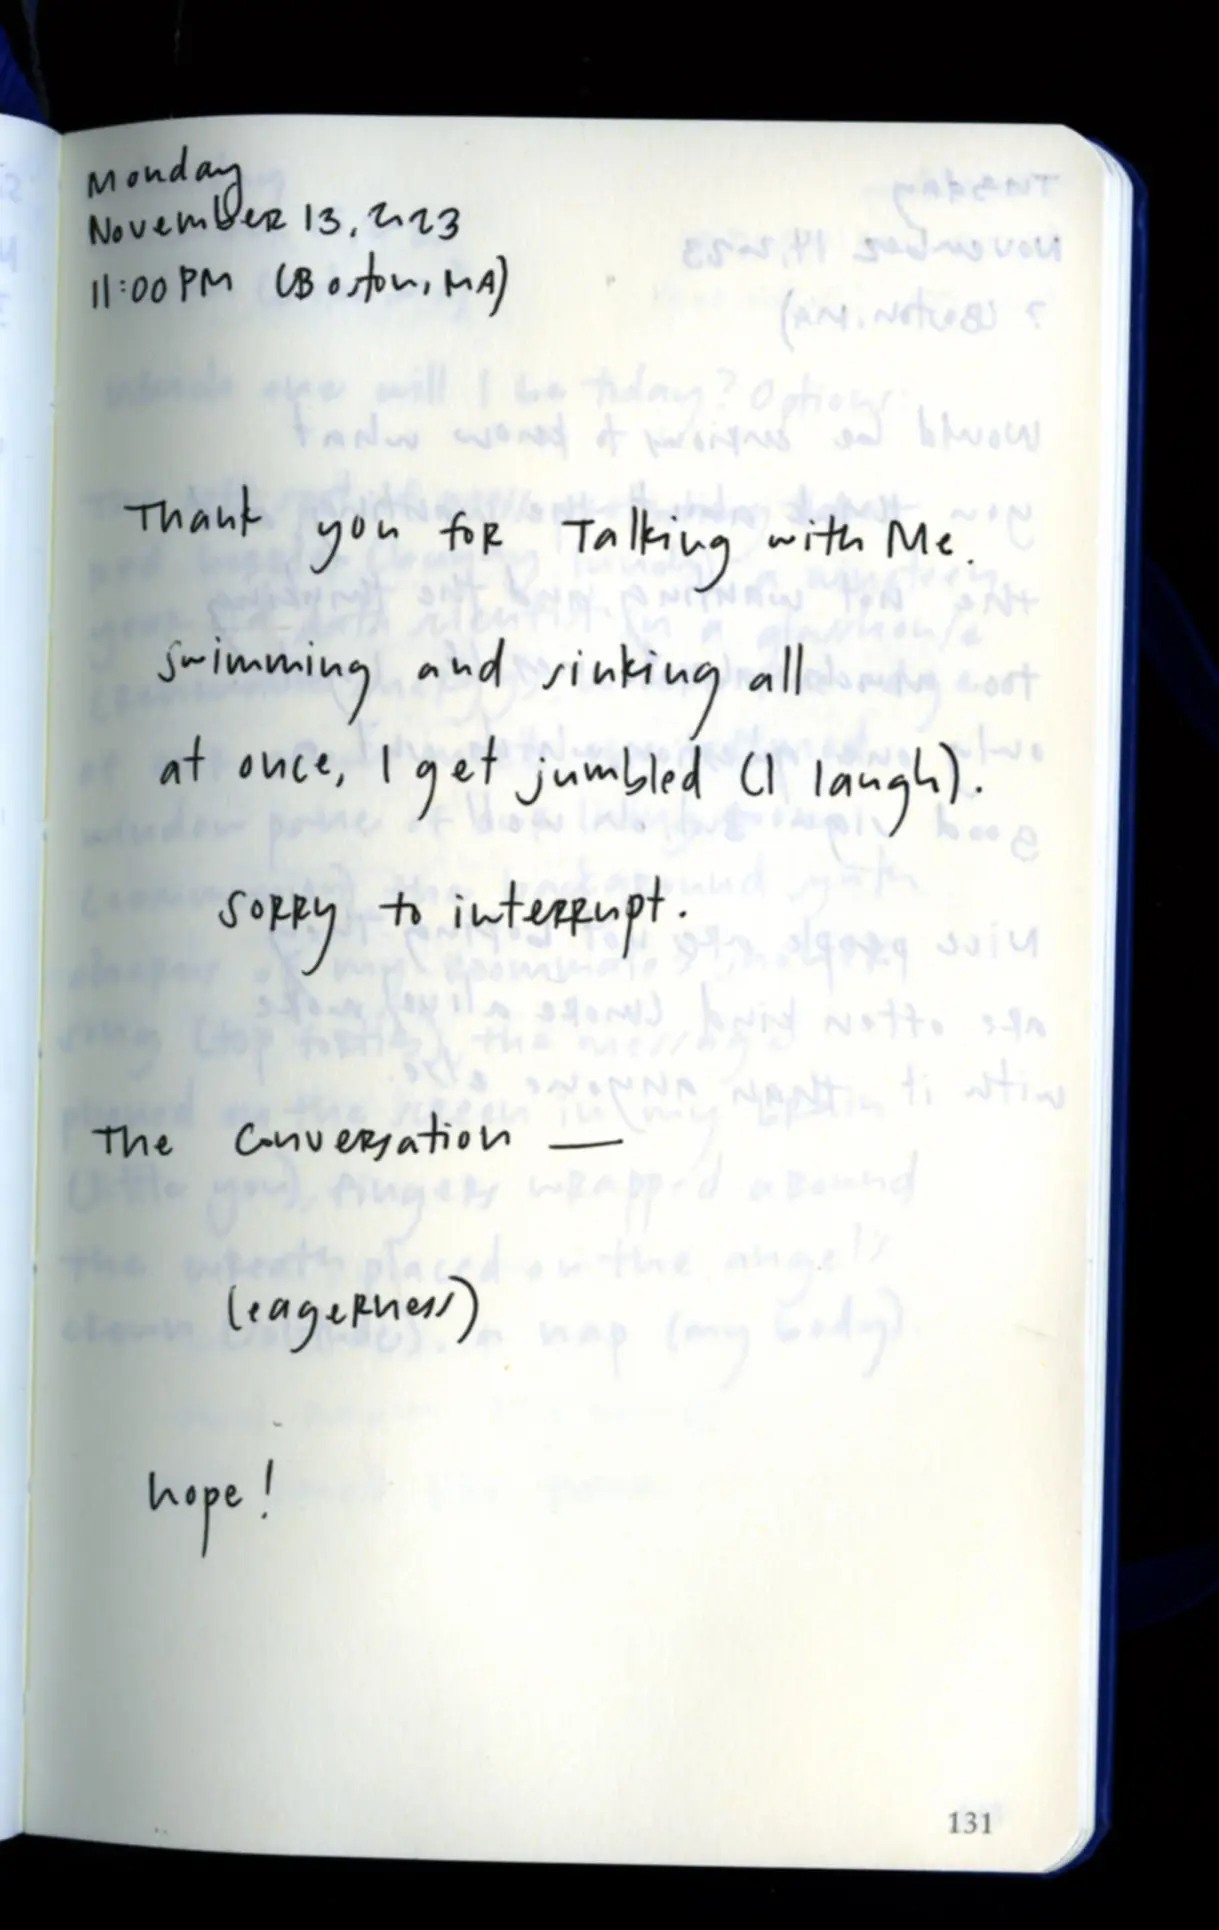 Monday
November 13, 2023
11:00 PM (Boston, MA)
Thank you for Talking with Me.
swimming and sinking all
at once, I get jumbled (I laugh).
sorry to interrupt.
The conversation —
(eagerness)
hope!
131